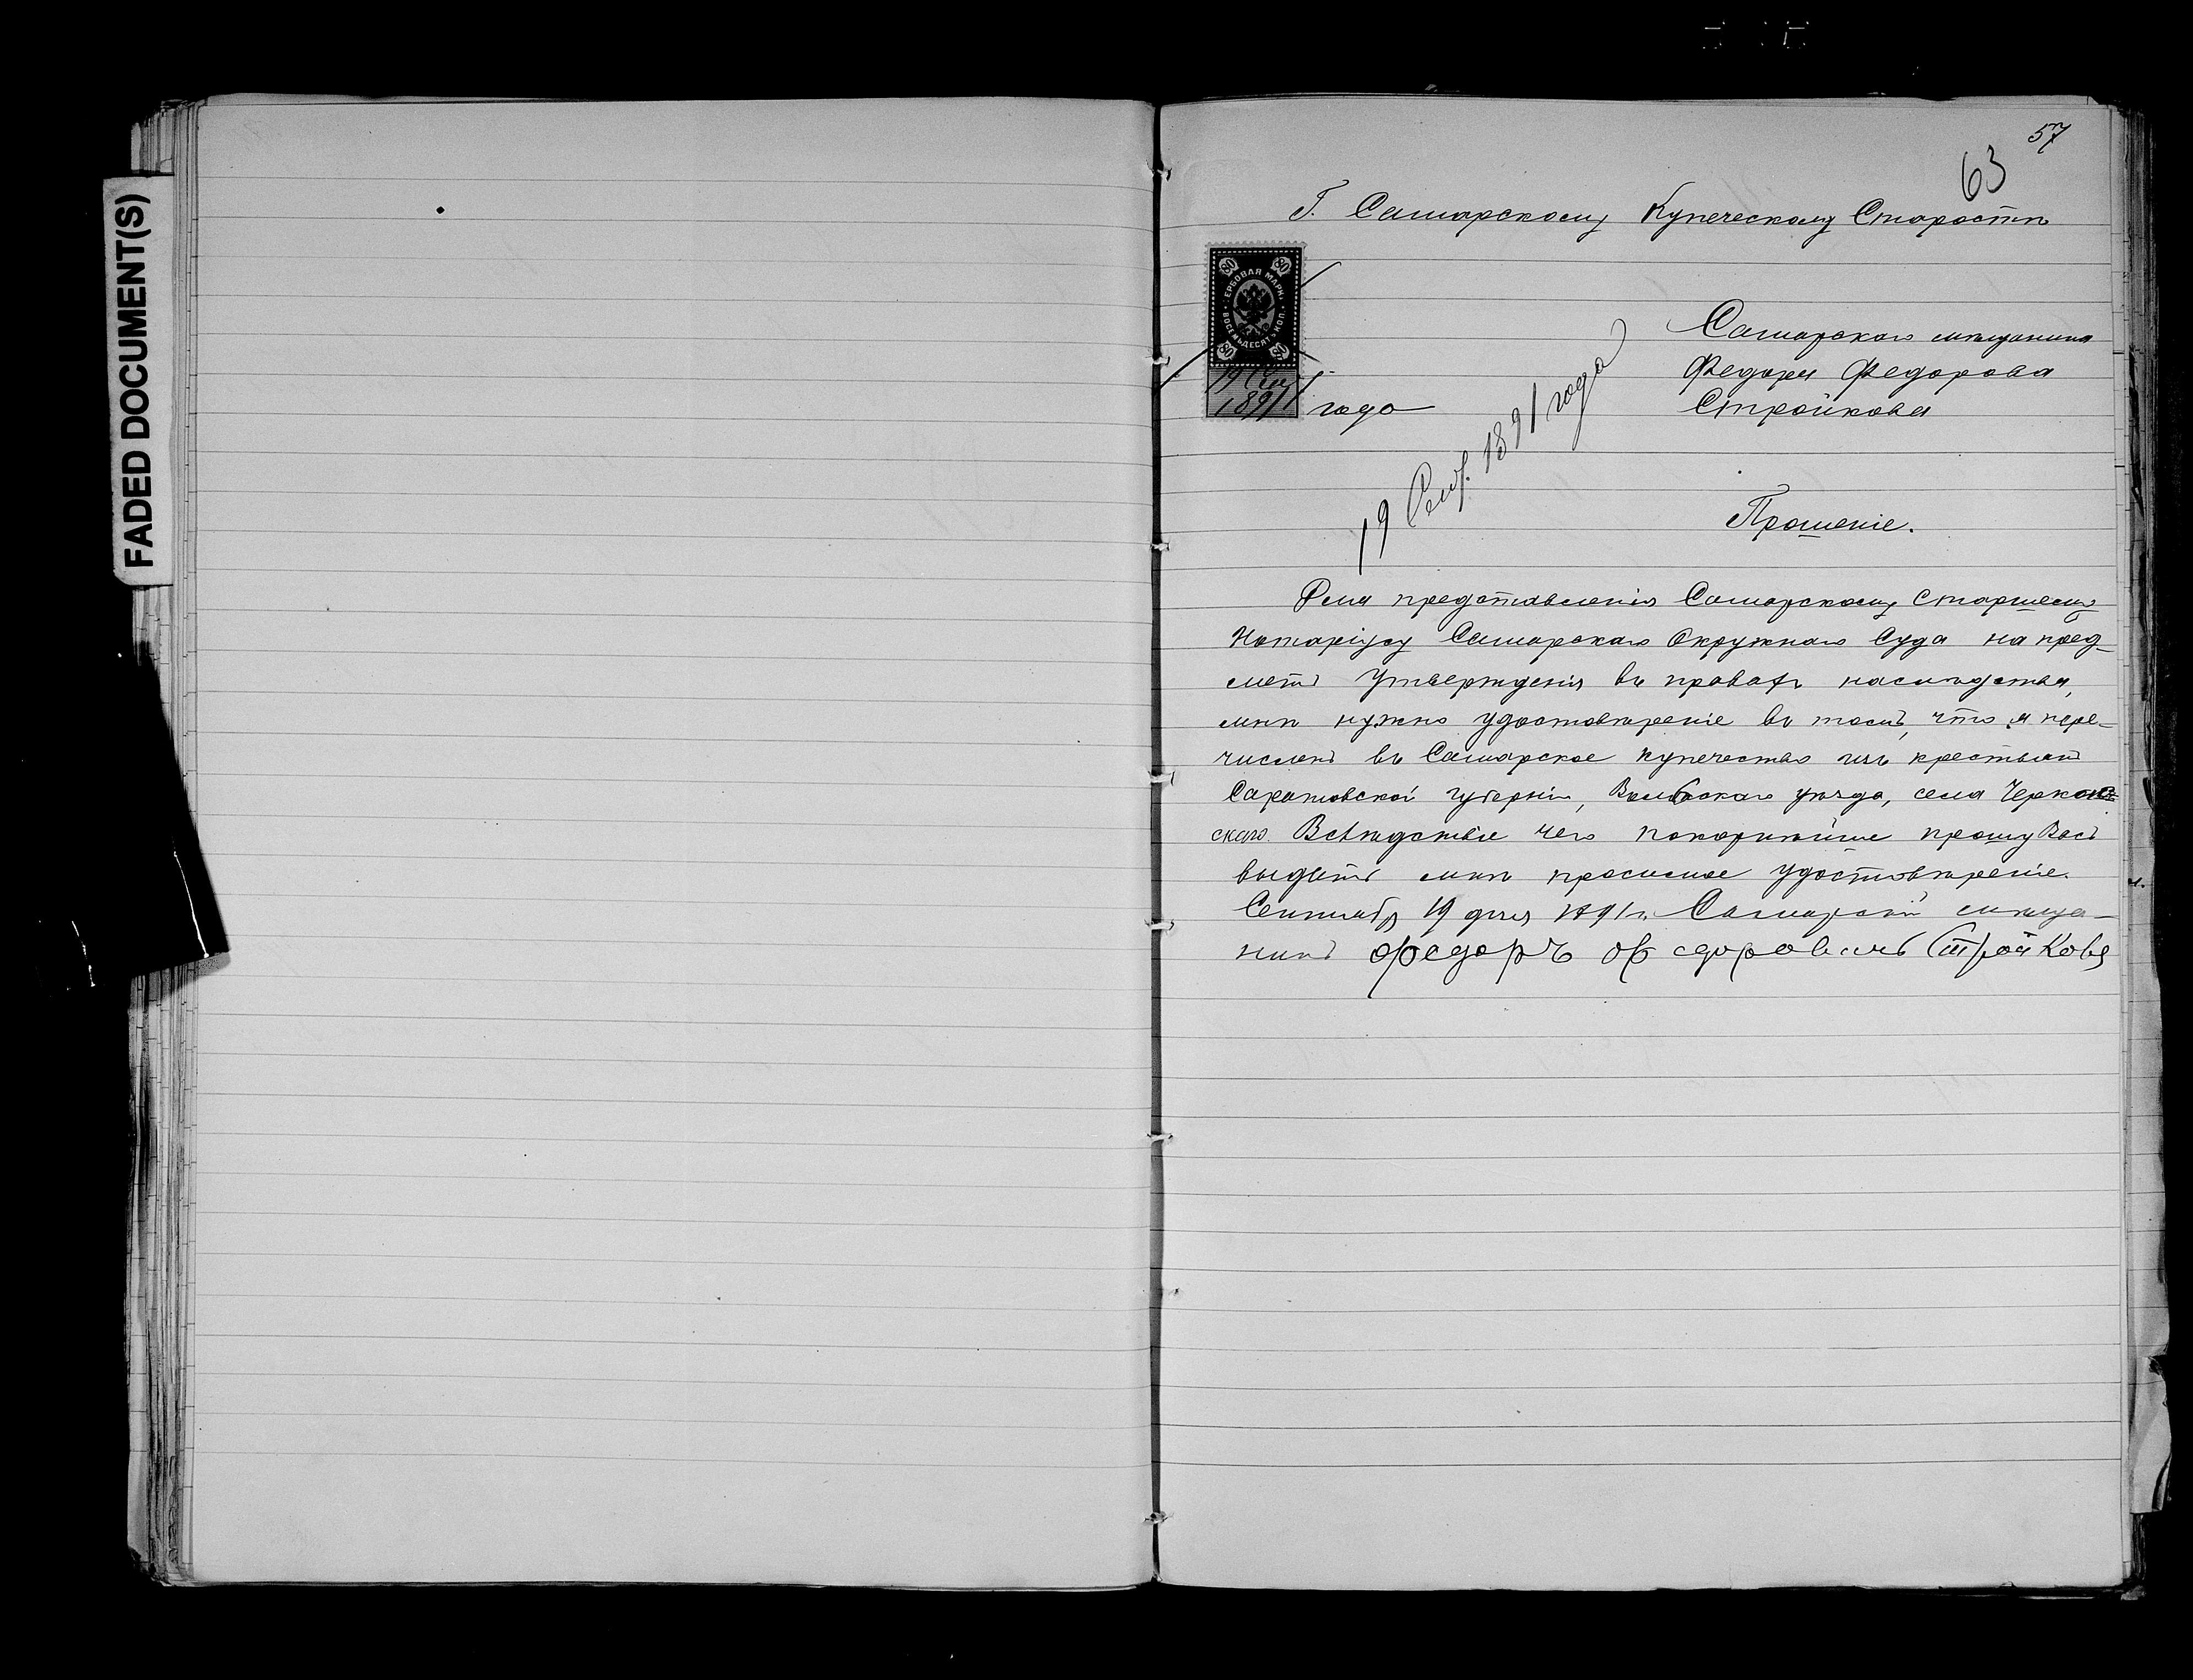 FADED DOCUMENT(S)
57
63
Г. Самарскому Купеческому Старостѣ
80 80
ГЕРБОВАЯ МАРКА
ВОСЕМЬДЕСЯТЪ КОП.
80 80
19 Сен
1891 года
19 Сент. 1891 года
Самарскаго мѣщанина
Федора Федорова
Стройкова
Прошеніе.
Для представленія Самарскому Старшему
Нотаріусу Самарскаго Окружнаго Суда на пред-
метъ Утвержденія въ правахъ наслѣдства,
мнѣ нужно удостовѣреніе въ томъ, что я пере-
численъ въ Самарское купечество изъ крестьянъ
Саратовской губерніи, Вольскаго уѣзда, села Черкас-
скаго. Вслѣдствіе чего покорнѣйше прошу Васъ
выдать мнѣ просимое удостовѣреніе.
Сентября 19 дня 1891 г. Самарскій мѣща-
нинъ Федоръ Федоровичь Стройковъ